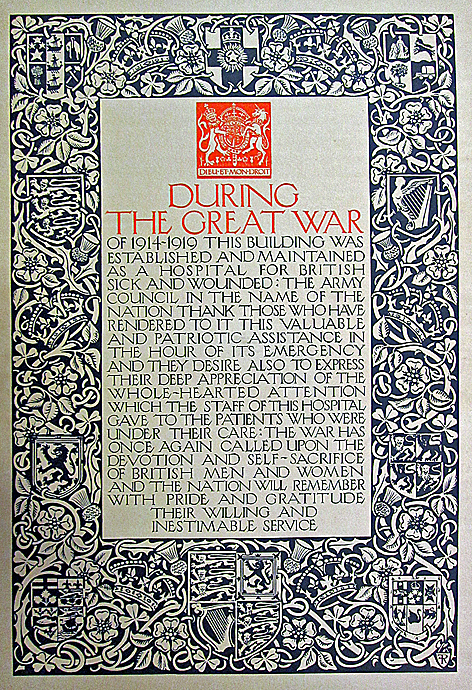 DIEU·ET·MON·DROIT
DURING
THE GREAT WAR
OF 1914-1919 THIS BUILDING WAS
ESTABLISHED AND MAINTAINED
AS A HOSPITAL FOR BRITISH
SICK AND WOUNDED : THE ARMY
COUNCIL IN THE NAME OF THE
NATION THANK THOSE WHO HAVE
RENDERED TO IT THIS VALUABLE
AND PATRIOTIC ASSISTANCE IN
THE HOUR OF ITS EMERGENCY
AND THEY DESIRE ALSO TO EXPRESS
THEIR DEEP APPRECIATION OF THE
WHOLE-HEARTED ATTENTION
WHICH THE STAFF OF THIS HOSPITAL
GAVE TO THE PATIENTS WHO WERE
UNDER THEIR CARE : THE WAR HAS
ONCE AGAIN CALLED UPON THE
DEVOTION AND SELF-SACRIFICE
OF BRITISH MEN AND WOMEN
AND THE NATION WILL REMEMBER
WITH PRIDE AND GRATITUDE
THEIR WILLING AND
INESTIMABLE SERVICE